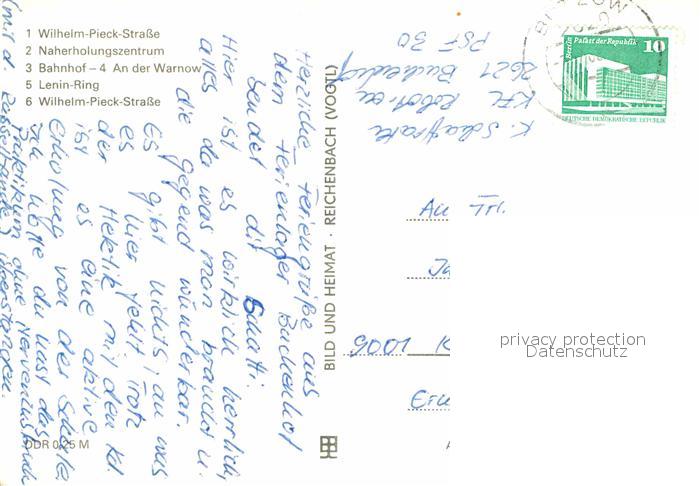 1 Wilhelm-Pieck-Straße
2 Naherholungszentrum
3 Bahnhof – 4 An der Warnow
5 Lenin-Ring
6 Wilhelm-Pieck-Straße
Herzliche Feriengrüße aus
dem Ferienlager Buchenhof
sendet dir Schatti.
Hier ist es wirklich herrlich,
alles da was man braucht u.
die Gegend wunderbar.
Es gibt nichts, an was
es hier fehlt. Trotz
der Hektik mit den Kd.
ist es eine aktive
Erholung von der Schule
Ich hoffe du hast das
Praktikum ohne Nervenzusammenbruch
(mit d. Rasselbande) überstanden.
DDR 0,25 M
BILD UND HEIMAT · REICHENBACH (VOGTL)
K.
KFL
2021
PSF 30
Berlin Palast der Republik
10
DEUTSCHE DEMOKRATISCHE REPUBLIK
An Frl.
9001 K
privacy protection
Datenschutz